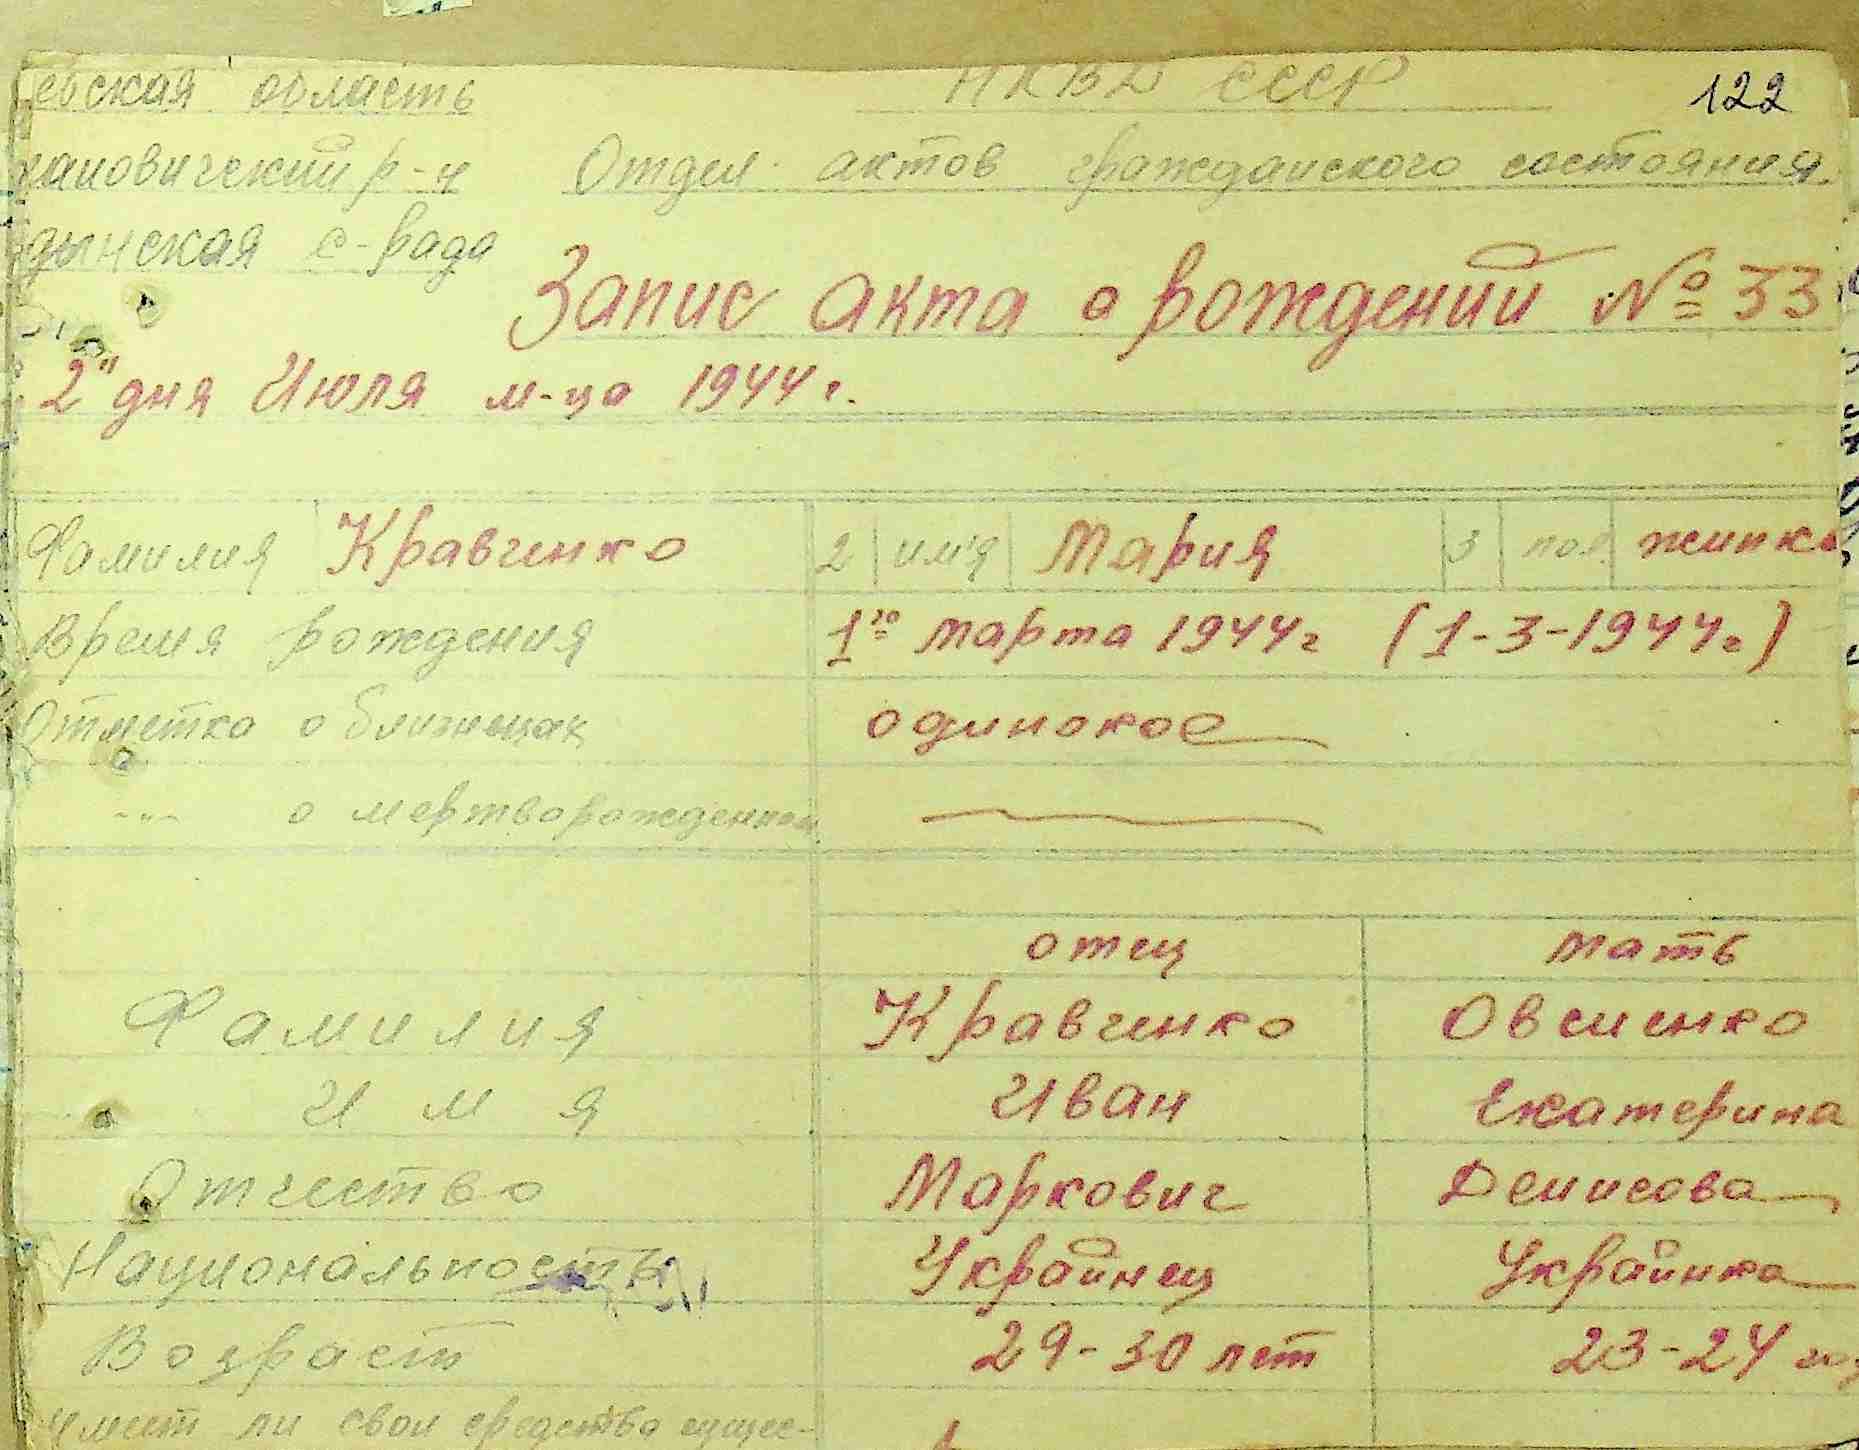 евская область НКВД СССР 122
кановический р-н Отдел актов гражданского состояния.
дынская с-рада
Запис акта о рождений № 33
2" дня Июля м-ца 1944 г.
Фамилия Кравченко 2 им'я Мария 3 пол жинка
Время рождения 1го марта 1944 г (1-3-1944 г)
Отметка о близнецах одинокое
-"- о мертворожденном
отец мать
Фамилия Кравченко Овсиенко
Имя Иван Екатерина
Отчество Маркович Денисова
Национальность Украйнец Украйнка
Возраст 29-30 лет 23-24
имеет ли свои средства сущес-